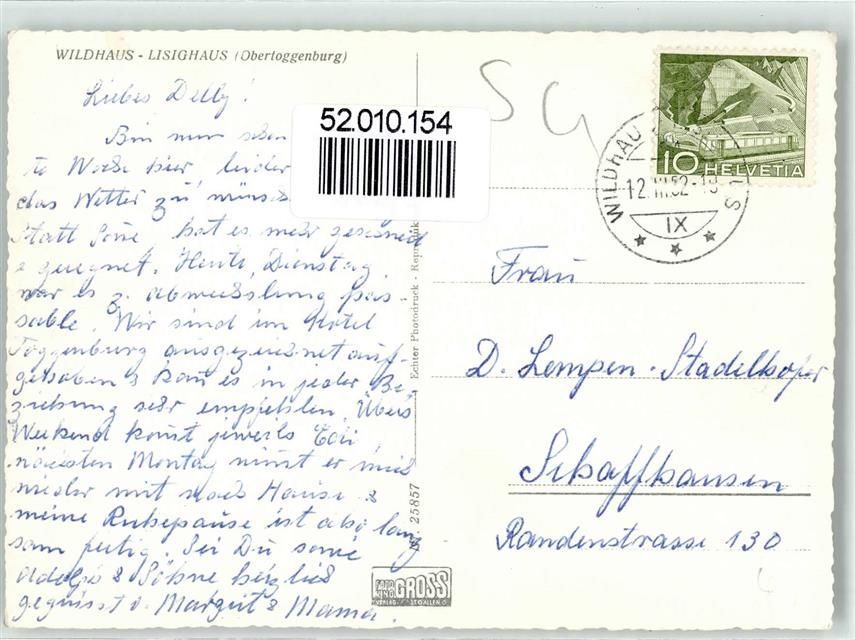 WILDHAUS - LISIGHAUS (Obertoggenburg)
Liebes Delly!
Bin nun schon
te Woche hier, leider
das Wetter zu wünsch
Statt Sonne, hat es mehr geschneit
& geregnet. Heute, Dienstag,
war es z. Abwechslung pas-
sable. Wir sind im Hotel
Toggenburg ausgezeichnet auf-
gehoben & kann es in jeder Be-
ziehung sehr empfehlen. Übers
Weekend kommt jeweils Edi,
nächsten Montag nimmt er mich
wieder mit nach Hause &
meine Ruhepause ist also lang-
sam fertig. Sei Du sowie
Adolf & Söhne herzlich
gegrüsst v. Margrit & Mama.
52.010.154
Echter Photodruck - Reprod
25857
FOTO
GROSS
ST. GALLEN
SG
10 HELVETIA
WILDHAUS
12.III.52-18
IX
Frau
D. Lempen-Stadelhofer
Schaffhausen
Randenstrasse 130